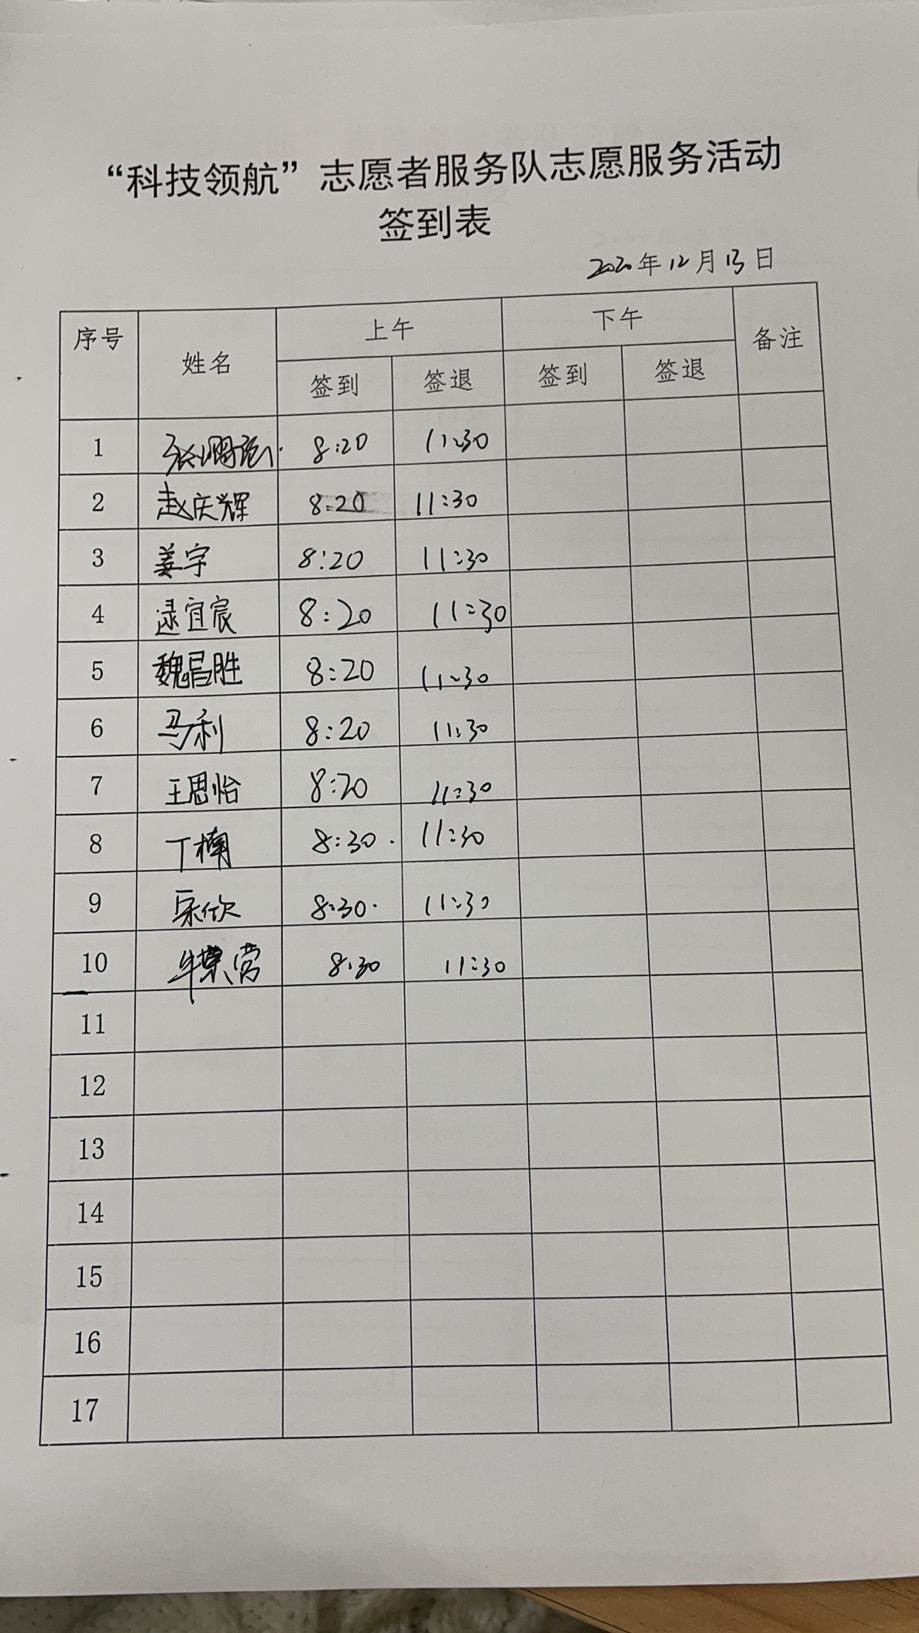 “科技领航”志愿者服务队志愿服务活动
签到表
2020年12月13日
序号 姓名 上午 下午 备注
签到 签退 签到 签退
1 8:20 11:30
2 赵庆辉 8:20 11:30
3 姜宇 8:20 11:30
4 逯宜宸 8:20 11:30
5 魏昌胜 8:20 11:30
6 马利 8:20 11:30
7 王思怡 8:20 11:30
8 丁楠 8:30 11:30
9 宋欣 8:30 11:30
10 8:30 11:30
11
12
13
14
15
16
17